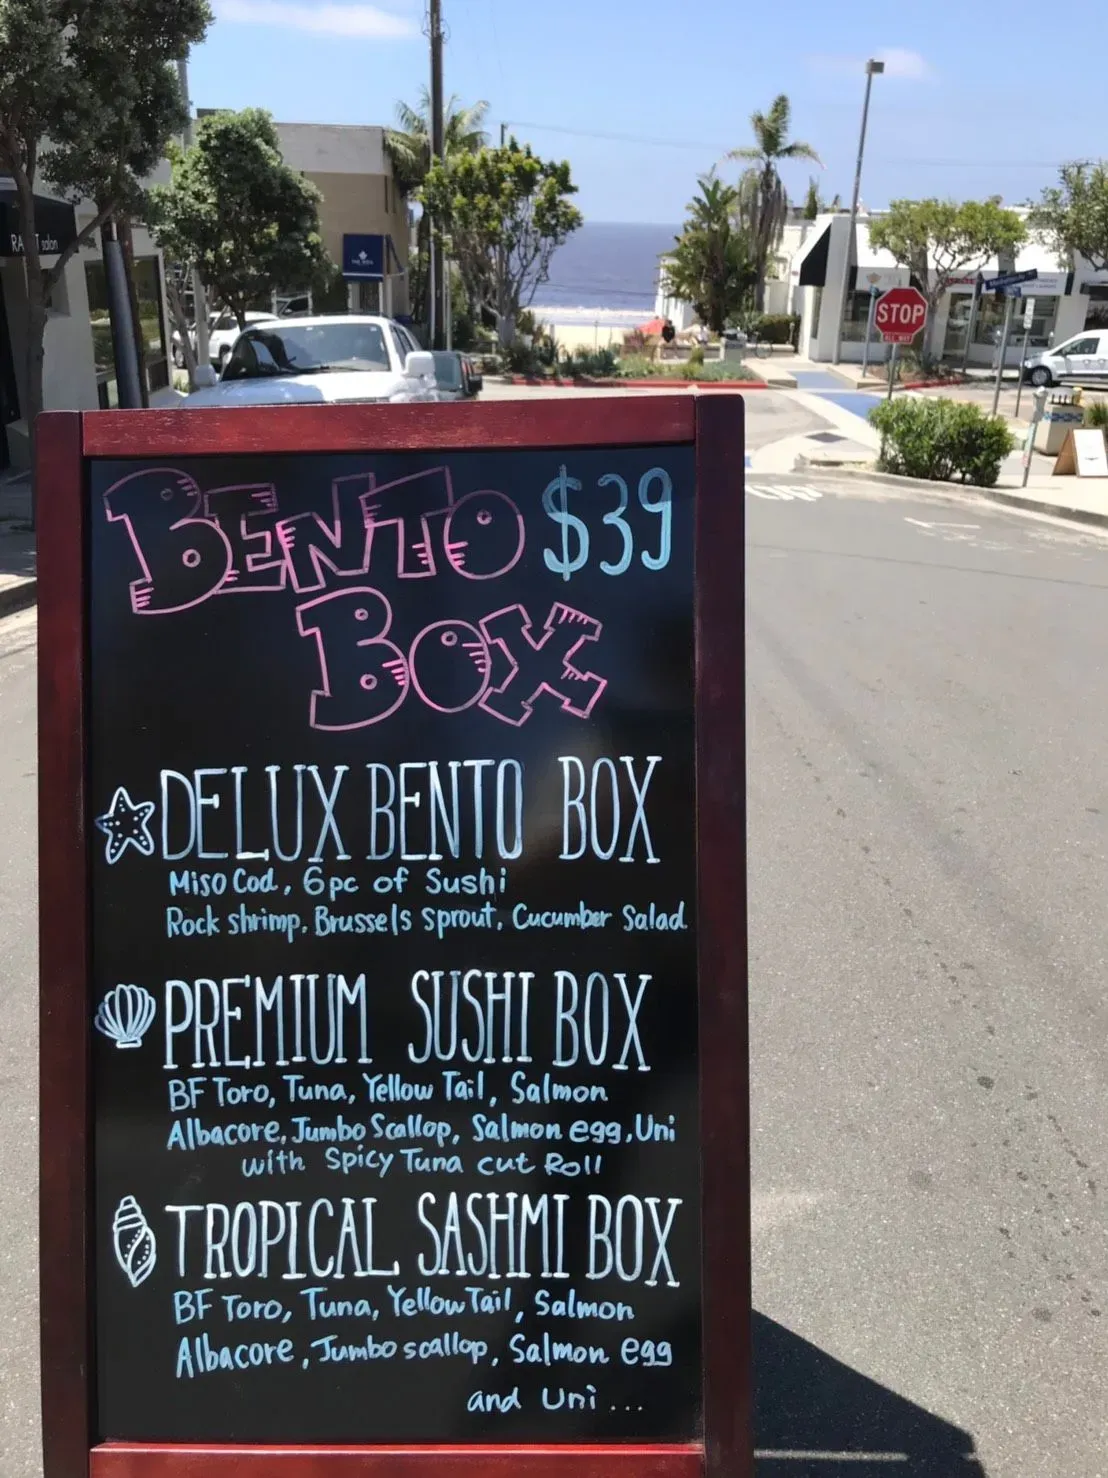 salon
STOP
ALL WAY
BENTO $39
BOX
DELUX BENTO BOX
Miso Cod, 6pc of Sushi
Rock shrimp, Brussels sprout, Cucumber Salad
PREMIUM SUSHI BOX
BF Toro, Tuna, Yellow Tail, Salmon
Albacore, Jumbo Scallop, Salmon egg, Uni
with Spicy Tuna cut Roll
TROPICAL SASHMI BOX
BF Toro, Tuna, Yellow Tail, Salmon
Albacore, Jumbo scallop, Salmon egg
and Uni ...